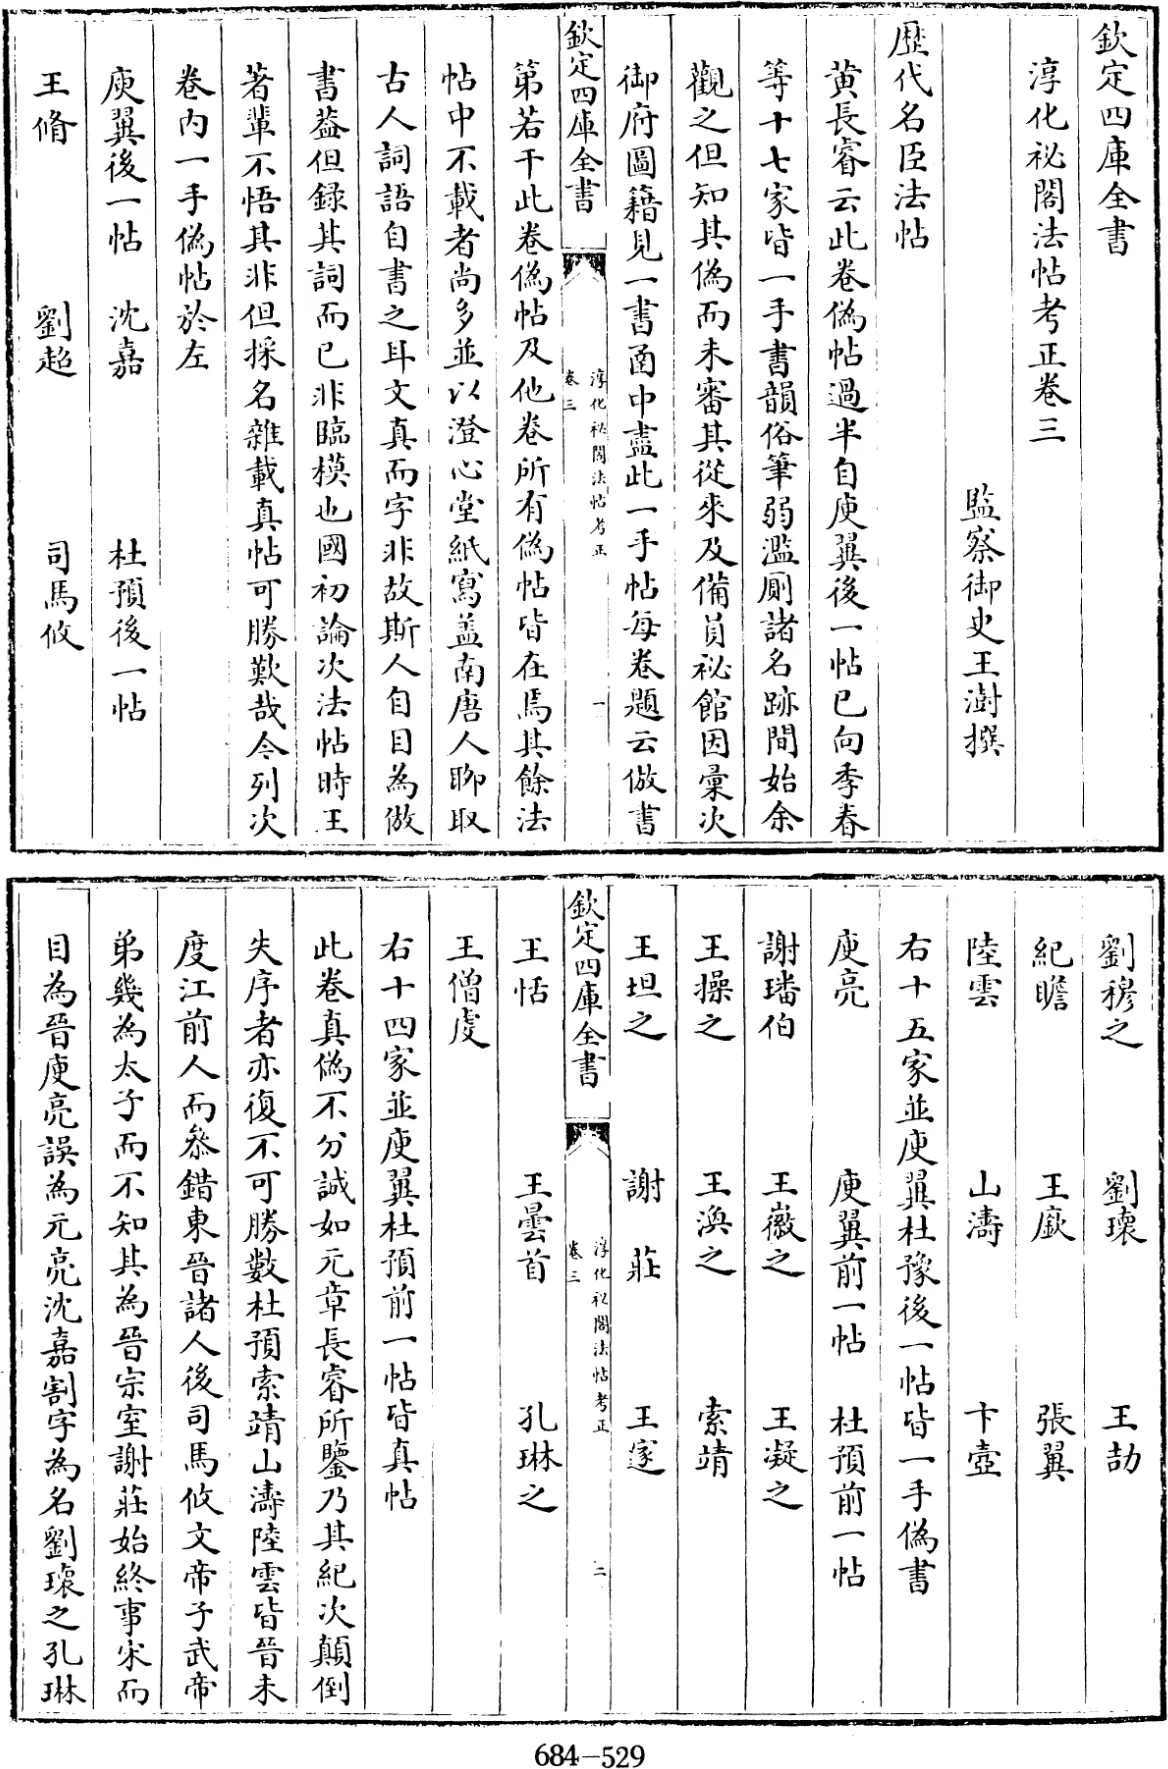 欽定四庫全書
淳化祕閣法帖考正卷三
監察御史王澍撰
歷代名臣法帖
黄長睿云此卷偽帖過半自庾翼後一帖已向季春
等十七家皆一手書韻俗筆弱濫厠諸名跡間始余
觀之但知其偽而未審其從來及備員祕館因彙次
御府圖籍見一書函中盡此一手帖每卷題云倣書
欽定四庫全書
淳化祕閣法帖考正
卷三
一
第若干此卷偽帖及他卷所有偽帖皆在焉其餘法
帖中不載者尚多並以澄心堂紙寫蓋南唐人聊取
古人詞語自書之耳文真而字非故斯人自目為倣
書葢但錄其詞而已非臨模也國初論次法帖時王
著輩不悟其非但採名雜載真帖可勝歎哉今列次
卷内一手偽帖於左
庾翼後一帖 沈嘉 杜預後一帖
王脩 劉超 司馬攸
劉穆之 劉瓌 王劭
紀瞻 王廞 張翼
陸雲 山濤 卞壼
右十五家並庾翼杜豫後一帖皆一手偽書
庾亮 庾翼前一帖 杜預前一帖
謝璠伯 王徽之 王凝之
王操之 王渙之 索靖
王坦之 謝莊 王邃
欽定四庫全書
淳化祕閣法帖考正
卷三
二
王恬 王曇首 孔琳之
王僧虔
右十四家並庾翼杜預前一帖皆真帖
此卷真偽不分誠如元章長睿所鑒乃其紀次顛倒
失序者亦復不可勝數杜預索靖山濤陸雲皆晉未
度江前人而叅錯東晉諸人後司馬攸文帝子武帝
弟幾為太子而不知其為晉宗室謝莊始終事宋而
目為晉庾亮誤為元亮沈嘉割字為名劉瓌之孔琳
684-529